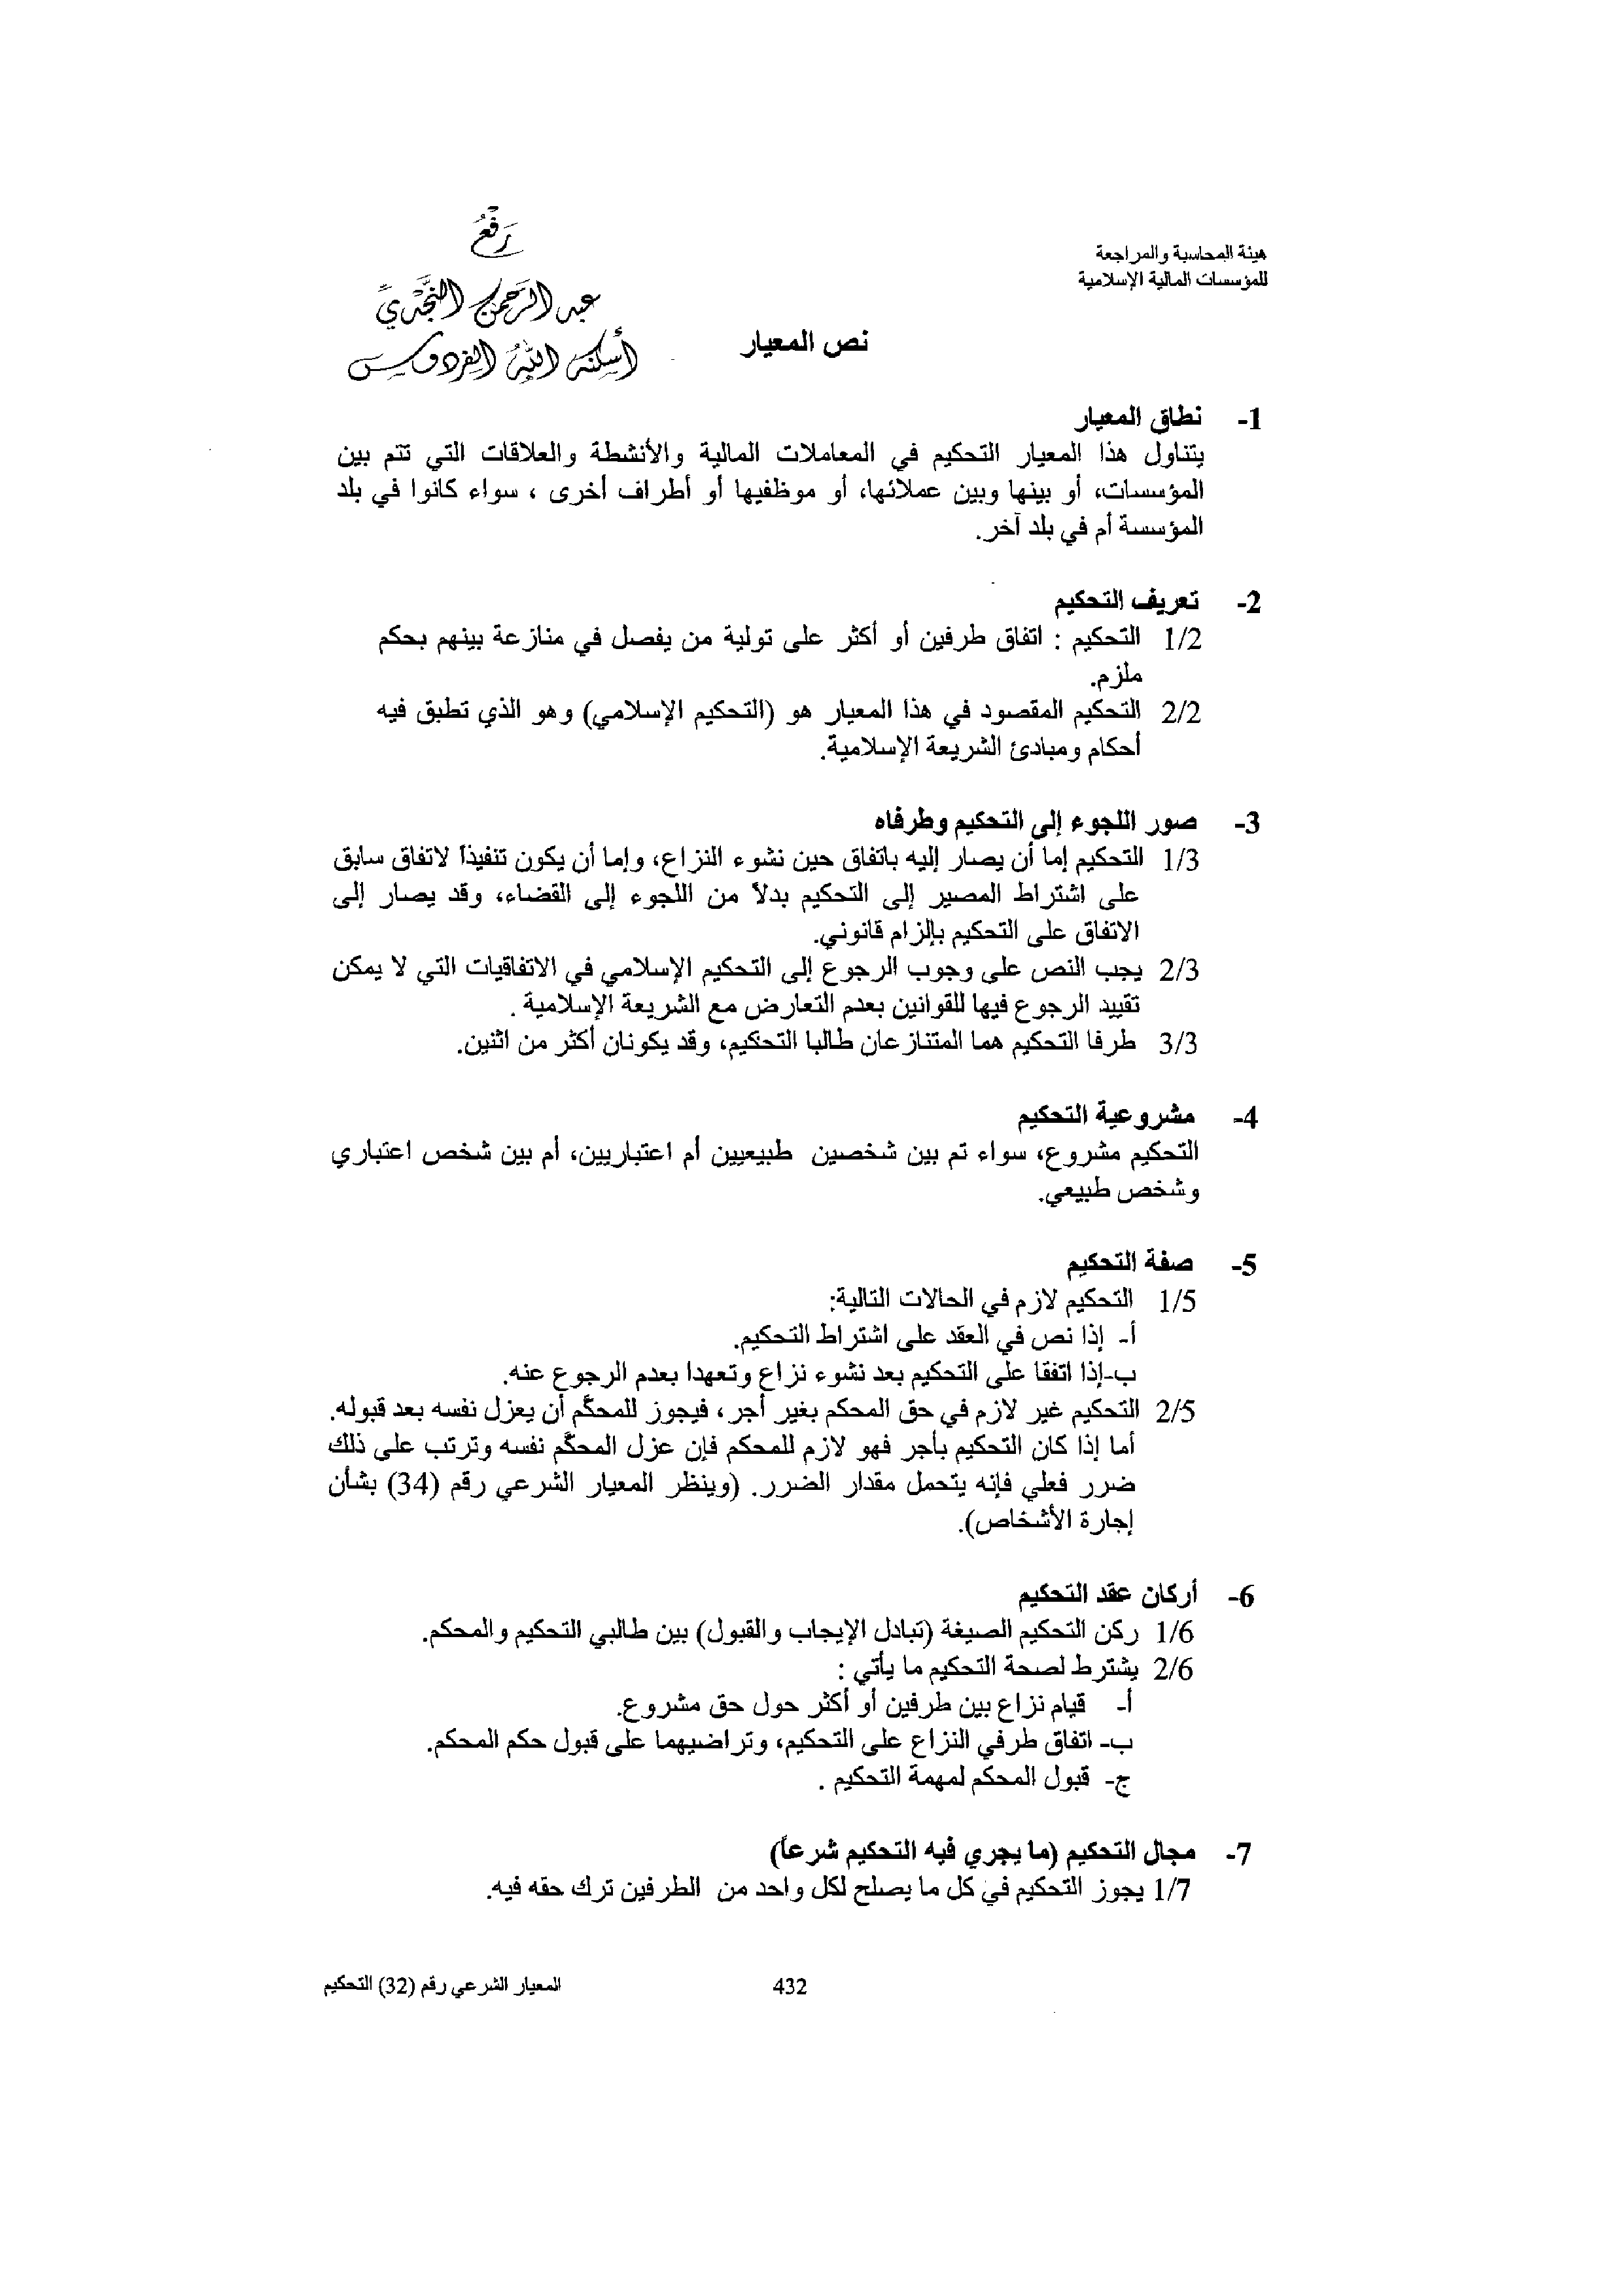 هيئة المحاسبة والمراجعة
للمؤسسات المالية الإسلامية
رَفْعُ
عبد الرَّحمنِ النَّجْدِيِّ
أسكنه اللهُ الفردوس
نص المعيار
1- نطاق المعيار
يتناول هذا المعيار التحكيم في المعاملات المالية والأنشطة والعلاقات التي تتم بين
المؤسسات، أو بينها وبين عملائها، أو موظفيها أو أطراف أخرى ، سواء كانوا في بلد
المؤسسة أم في بلد آخر.
2- تعريف التحكيم
1/2 التحكيم : اتفاق طرفين أو أكثر على تولية من يفصل في منازعة بينهم بحكم
ملزم.
2/2 التحكيم المقصود في هذا المعيار هو (التحكيم الإسلامي) وهو الذي تطبق فيه
أحكام ومبادئ الشريعة الإسلامية.
3- صور اللجوء إلى التحكيم وطرفاه
1/3 التحكيم إما أن يصار إليه باتفاق حين نشوء النزاع، وإما أن يكون تنفيذاً لاتفاق سابق
على اشتراط المصير إلى التحكيم بدلاً من اللجوء إلى القضاء، وقد يصار إلى
الاتفاق على التحكيم بإلزام قانوني.
2/3 يجب النص على وجوب الرجوع إلى التحكيم الإسلامي في الاتفاقيات التي لا يمكن
تقييد الرجوع فيها للقوانين بعدم التعارض مع الشريعة الإسلامية .
3/3 طرفا التحكيم هما المتنازعان طالبا التحكيم، وقد يكونان أكثر من اثنين.
4- مشروعية التحكيم
التحكيم مشروع، سواء تم بين شخصين طبيعيين أم اعتباريين، أم بين شخص اعتباري
وشخص طبيعي.
5- صفة التحكيم
1/5 التحكيم لازم في الحالات التالية:
أ- إذا نص في العقد على اشتراط التحكيم.
ب-إذا اتفقا على التحكيم بعد نشوء نزاع وتعهدا بعدم الرجوع عنه.
2/5 التحكيم غير لازم في حق المحكم بغير أجر، فيجوز للمحكَّم أن يعزل نفسه بعد قبوله.
أما إذا كان التحكيم بأجر فهو لازم للمحكم فإن عزل المحكَّم نفسه وترتب على ذلك
ضرر فعلي فإنه يتحمل مقدار الضرر. (وينظر المعيار الشرعي رقم (34) بشأن
إجارة الأشخاص).
6- أركان عقد التحكيم
1/6 ركن التحكيم الصيغة (تبادل الإيجاب والقبول) بين طالبي التحكيم والمحكم.
2/6 يشترط لصحة التحكيم ما يأتي :
أ- قيام نزاع بين طرفين أو أكثر حول حق مشروع.
ب- اتفاق طرفي النزاع على التحكيم، وتراضيهما على قبول حكم المحكم.
ج- قبول المحكم لمهمة التحكيم .
7- مجال التحكيم (ما يجري فيه التحكيم شرعاً)
1/7 يجوز التحكيم في كل ما يصلح لكل واحد من الطرفين ترك حقه فيه.
المعيار الشرعي رقم (32) التحكيم
432